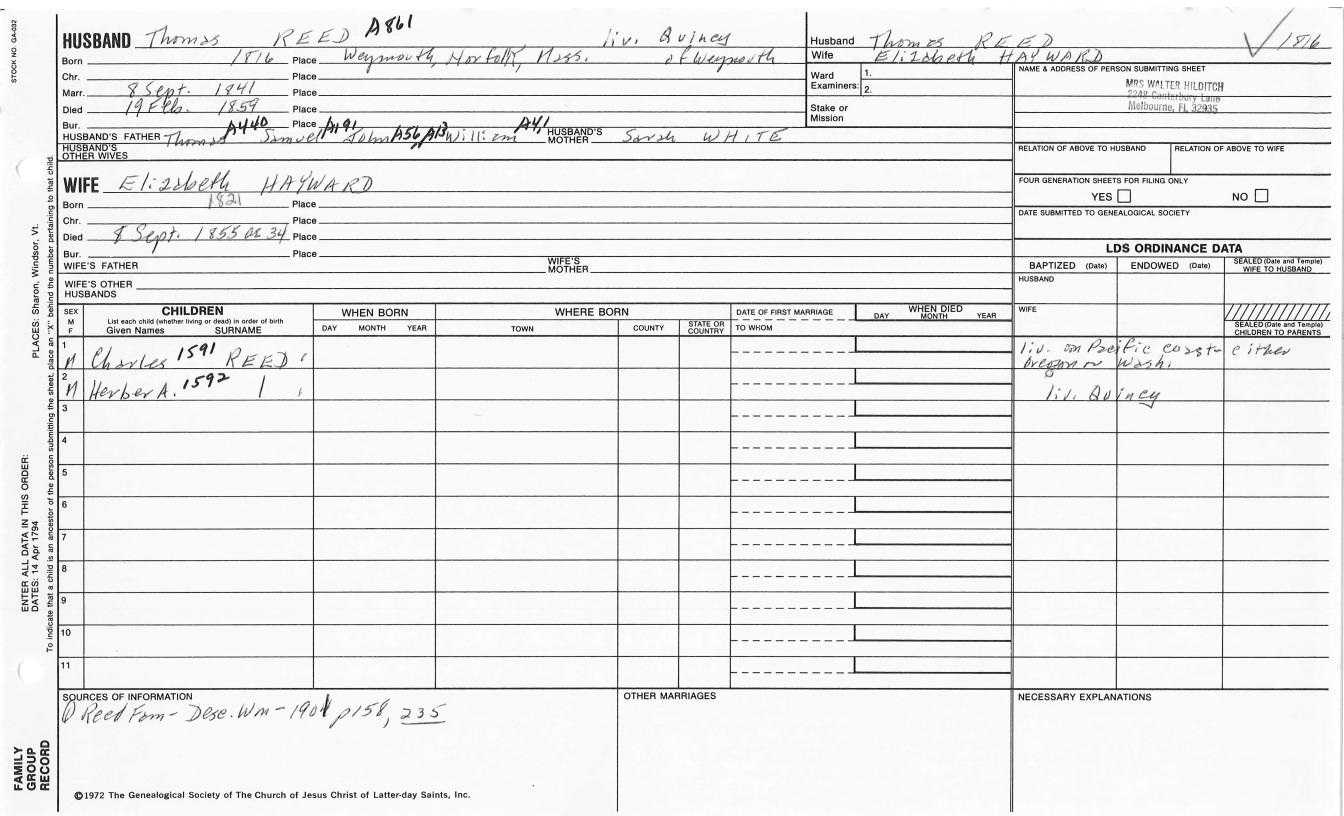 STOCK NO. GA-032
HUSBAND Thomas REED A861 liv. Quincy
Born 1816 Place Weymouth, Norfolk, Mass. of Weymouth
Chr. Place
Marr. 8 Sept. 1841 Place
Died 19 Feb. 1859 Place
Bur. Place
HUSBAND'S FATHER Thomas A440 Samuel A191 John A56 A13 William A4,1 HUSBAND'S MOTHER Sarah WHITE
HUSBAND'S OTHER WIVES
WIFE Elizabeth HAYWARD
Born 1821 Place
Chr. Place
Died 8 Sept. 1855 ae 34 Place
Bur. Place
WIFE'S FATHER WIFE'S MOTHER
WIFE'S OTHER HUSBANDS
Husband Thomas REED 1816
Wife Elizabeth HAYWARD
Ward Examiners: 1.
2.
Stake or Mission
NAME & ADDRESS OF PERSON SUBMITTING SHEET
MRS WALTER HILDITCH
2248 Canterbury Lane
Melbourne, FL 32935
RELATION OF ABOVE TO HUSBAND RELATION OF ABOVE TO WIFE
FOUR GENERATION SHEETS FOR FILING ONLY
YES NO
DATE SUBMITTED TO GENEALOGICAL SOCIETY
LDS ORDINANCE DATA
BAPTIZED (Date) ENDOWED (Date) SEALED (Date and Temple) WIFE TO HUSBAND
HUSBAND
WIFE
SEALED (Date and Temple) CHILDREN TO PARENTS
SEX M F
CHILDREN
List each child (whether living or dead) in order of birth
Given Names SURNAME
WHEN BORN
DAY MONTH YEAR
WHERE BORN
TOWN COUNTY STATE OR COUNTRY
DATE OF FIRST MARRIAGE
TO WHOM
WHEN DIED
DAY MONTH YEAR
1 M Charles 1591 REED liv. on Pacific coast - either
Oregon or Wash.
2 M Herber A. 1592 liv. Quincy
3
4
5
6
7
8
9
10
11
SOURCES OF INFORMATION
Reed Fam - Desc. Wm - 1901 p158, 235
OTHER MARRIAGES
NECESSARY EXPLANATIONS
©1972 The Genealogical Society of The Church of Jesus Christ of Latter-day Saints, Inc.
FAMILY GROUP RECORD
ENTER ALL DATA IN THIS ORDER:
DATES: 14 Apr 1794
PLACES: Sharon, Windsor, Vt.
To indicate that a child is an ancestor of the person submitting the sheet, place an "X" behind the number pertaining to that child.